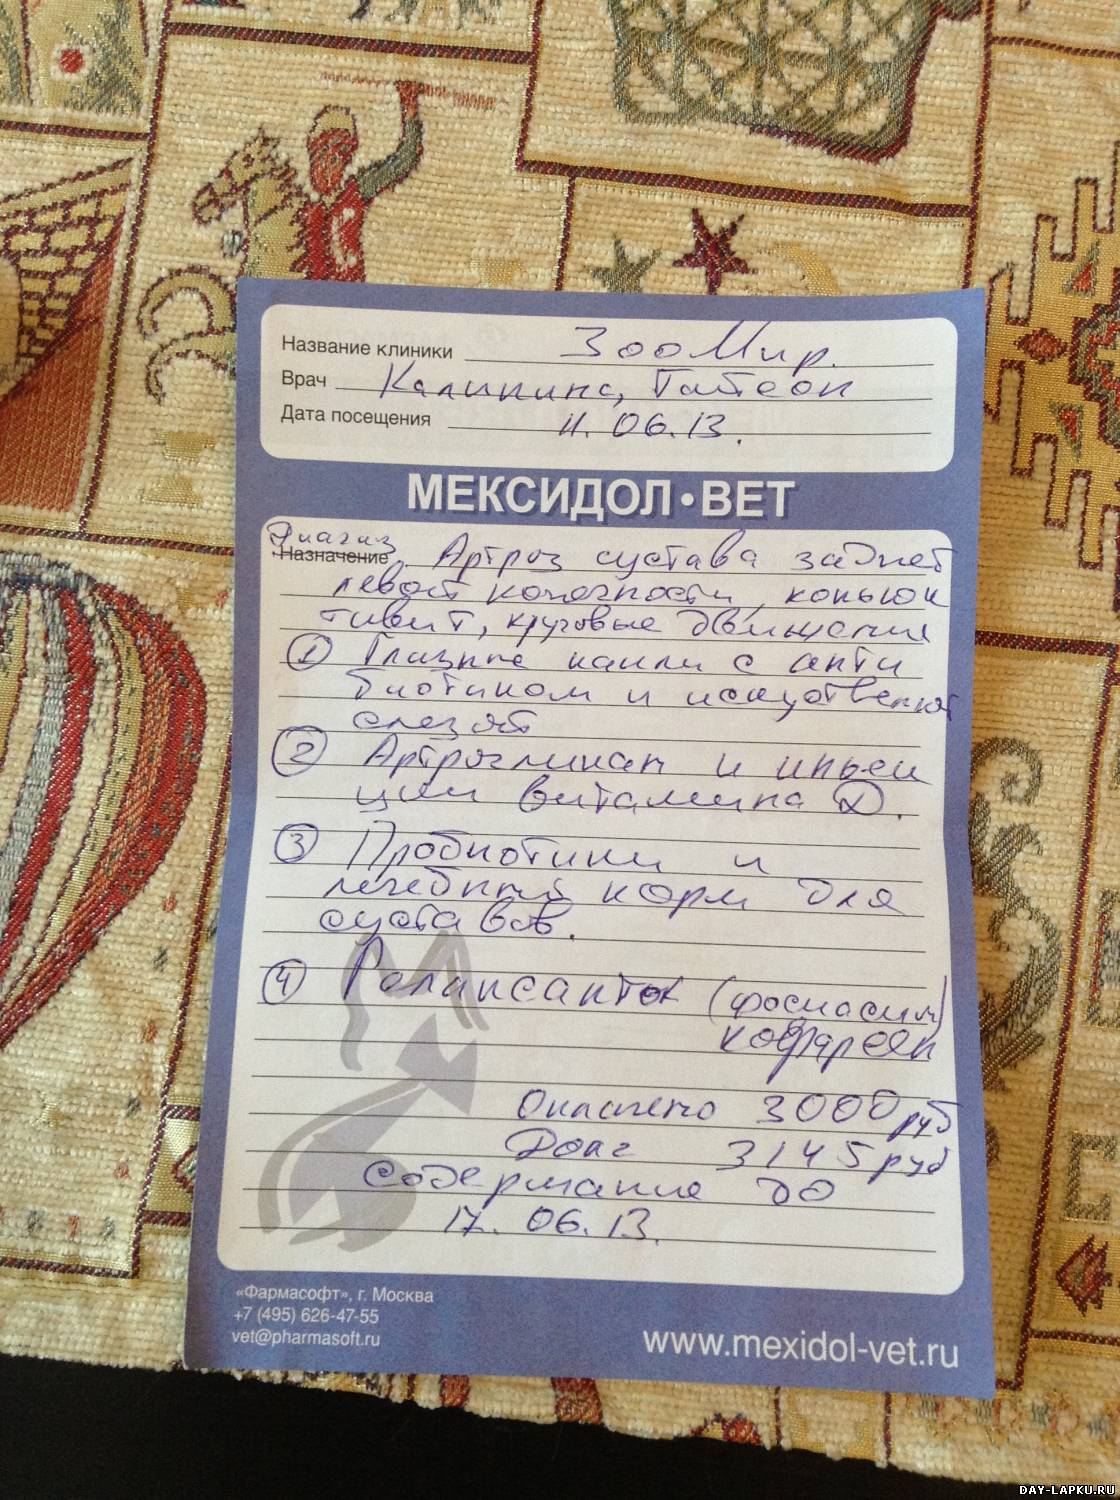 Название клиники ЗооМир.
Врач Калинина,
Дата посещения 11. 06. 13.
МЕКСИДОЛ•ВЕТ
Диагноз
Назначение Артроз сустава задней
левой конечности, коньюк
тивит, круговые движения
① Глазные капли с анти
биотиком и искусственной
слезой
② Артрогликан и иньек
ции витамина D.
③ Пробиотики и
лечебный корм для
суставов.
④
Оплачено 3000 руб
Долг 3145 руб
Содержание до
17. 06. 13.
«Фармасофт», г. Москва
+7 (495) 626-47-55
vet@pharmasoft.ru
www.mexidol-vet.ru
DAY-LAPKU.RU